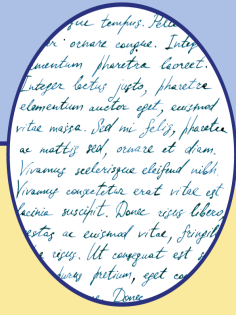 tempus.
ornare congue.
pharetra laoreet.
Integer lectus justo, pharetra
elementum auctor eget, euismod
vitae massa. Sed mi felis, pharetra
ac mattis sed, ornare et diam.
Vivamus scelerisque eleifend nibh.
Vivamus consectetur erat vitae est
lacinia suscipit. Donec risus libero,
ac euismod vitae,
risus. Ut consequat est
pretium, eget
Donec